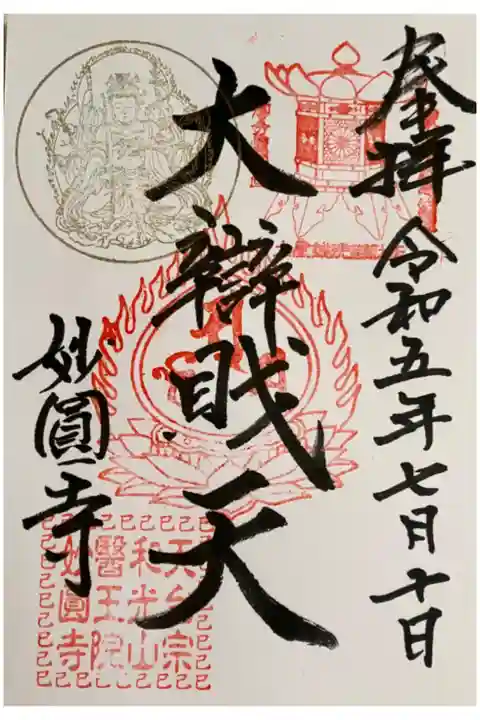 奉拝 令和五年七月十日
大辯戝天
妙圓寺
天台宗
和光山
醫王院
妙圓寺